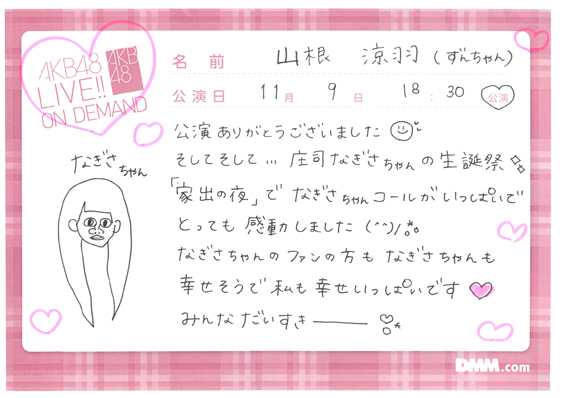 AKB48
LIVE!!
ON DEMAND
AKB
48
名前 山根 涼羽 (ずんちゃん)
公演日 11月 9日 18:30 公演
公演ありがとうございました
そしてそして… 庄司なぎさちゃんの生誕祭
「家出の夜」で なぎさちゃんコールがいっぱいで
とっても 感動しました (^^)/
なぎさちゃんのファンの方も なぎさちゃんも
幸せそうで 私も 幸せいっぱいです
みんな だいすきーーー
なぎさ
ちゃん
DMM.com